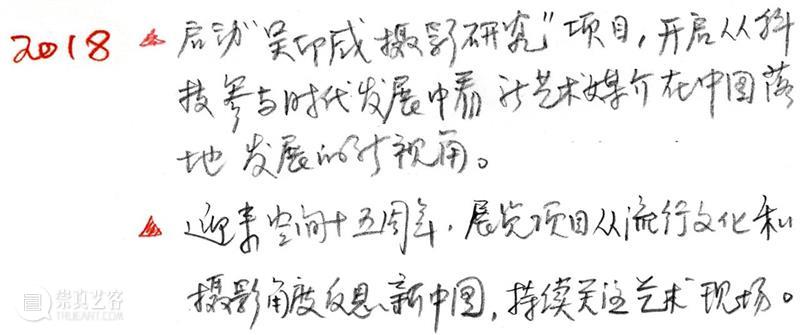 2018 启动“吴印咸摄影研究”项目，开启从科
技参与时代发展中看新艺术媒介在中国落
地发展的新视角。
迎来空间十五周年，展览项目从流行文化和
摄影角度反思新中国，持续关注艺术现场。
崇真艺客
TRUEART.COM